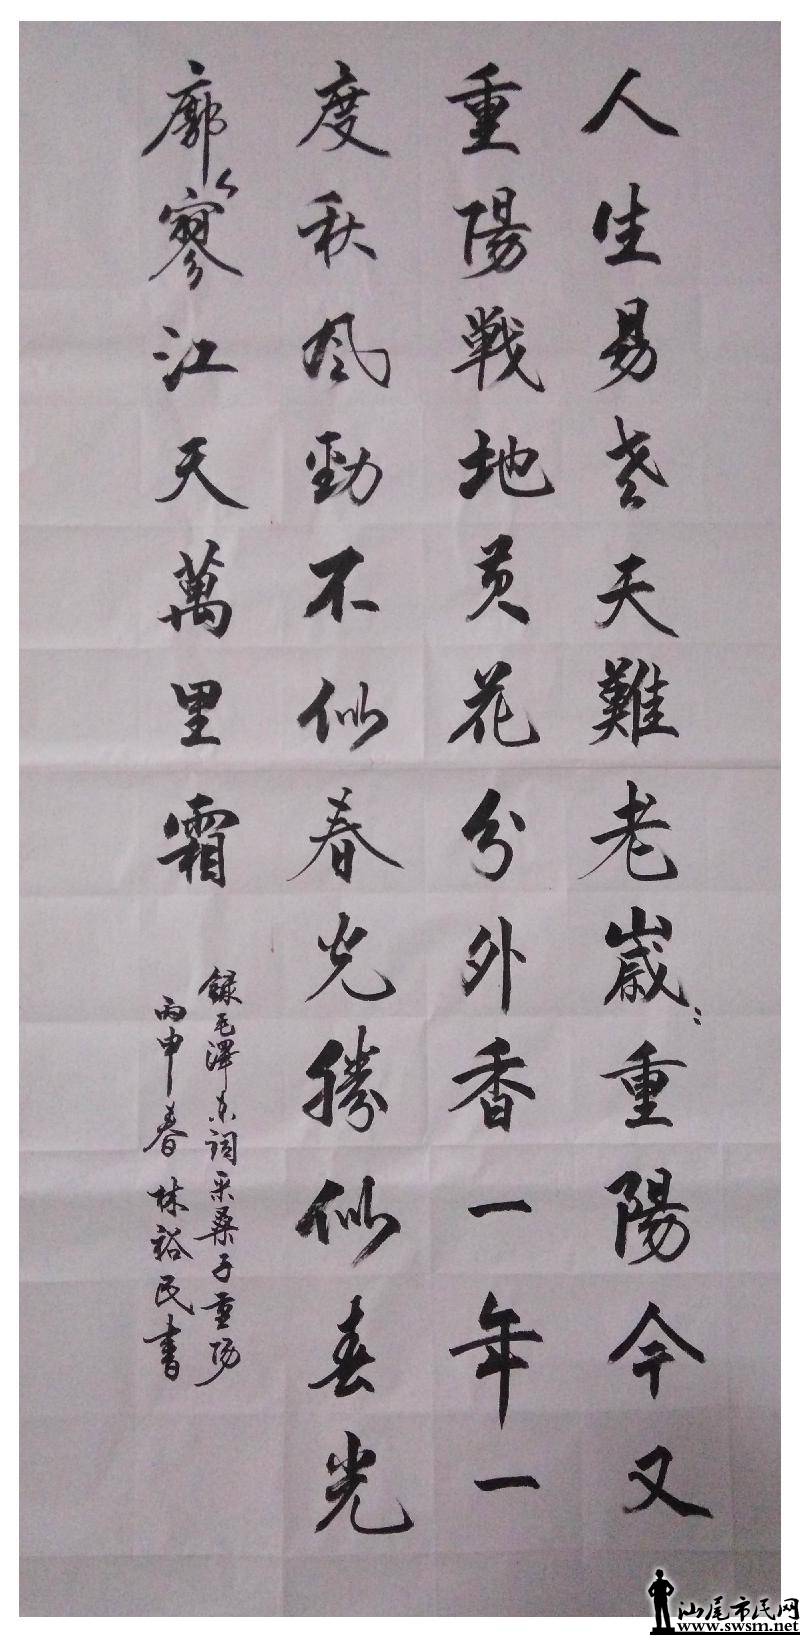 人生易老天難老歲〻重陽今又
重陽戰地黄花分外香一年一
度秋风勁不似春光勝似春光
廓〻寥江天萬里霜
録毛澤东词采桑子重陽
丙申春林裕民書
汕尾市民网
www.swsm.net